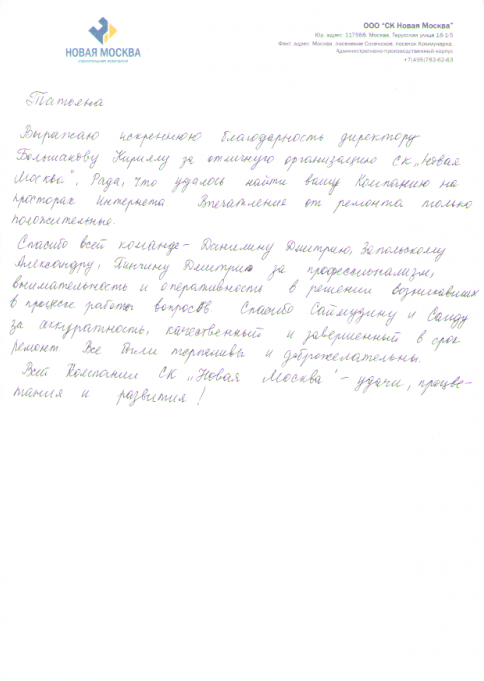 НОВАЯ МОСКВА
строительная компания
ООО "СК Новая Москва"
Юр. адрес: 117556, Москва, Тарусская улица 18-1-5
Факт. адрес: Москва, поселение Сосенское, поселок Коммунарка,
Административно-производственный корпус
+7(495)783-62-63
Татьяна
Выражаю искреннюю благодарность директору
Большакову Кириллу за отличную организацию СК „Новая
Москва". Рада, что удалось найти вашу Компанию на
просторах Интернета Впечатление от ремонта только
положительные.
Спасибо всей команде - Данилину Дмитрию, Запольскому
Александру, Пинчину Дмитрию за профессионализм,
внимательность и оперативность в решении возникавших
в процессе работы вопросов Спасибо Саймудину и Саиду
за аккуратность, качественный и завершенный в срок
ремонт Все были терпеливы и доброжелательны.
Всей Компании СК „Новая Москва" - удачи, процве-
тания и развития!